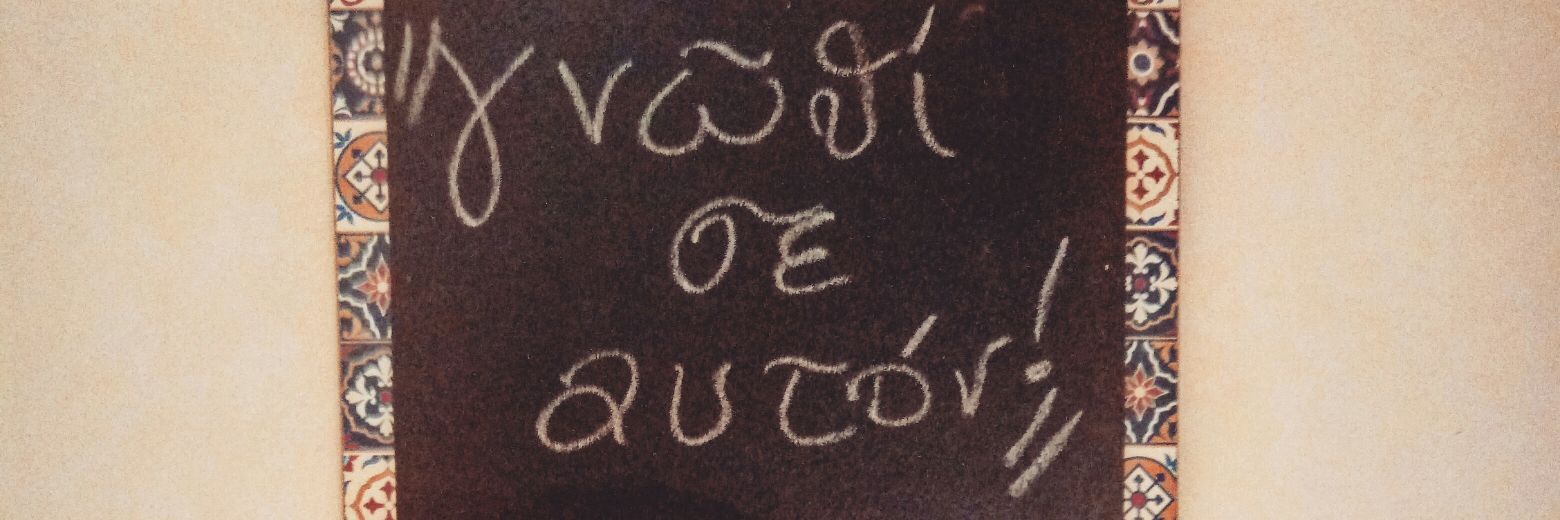 "γνῶθί
σε
αυτόν!"